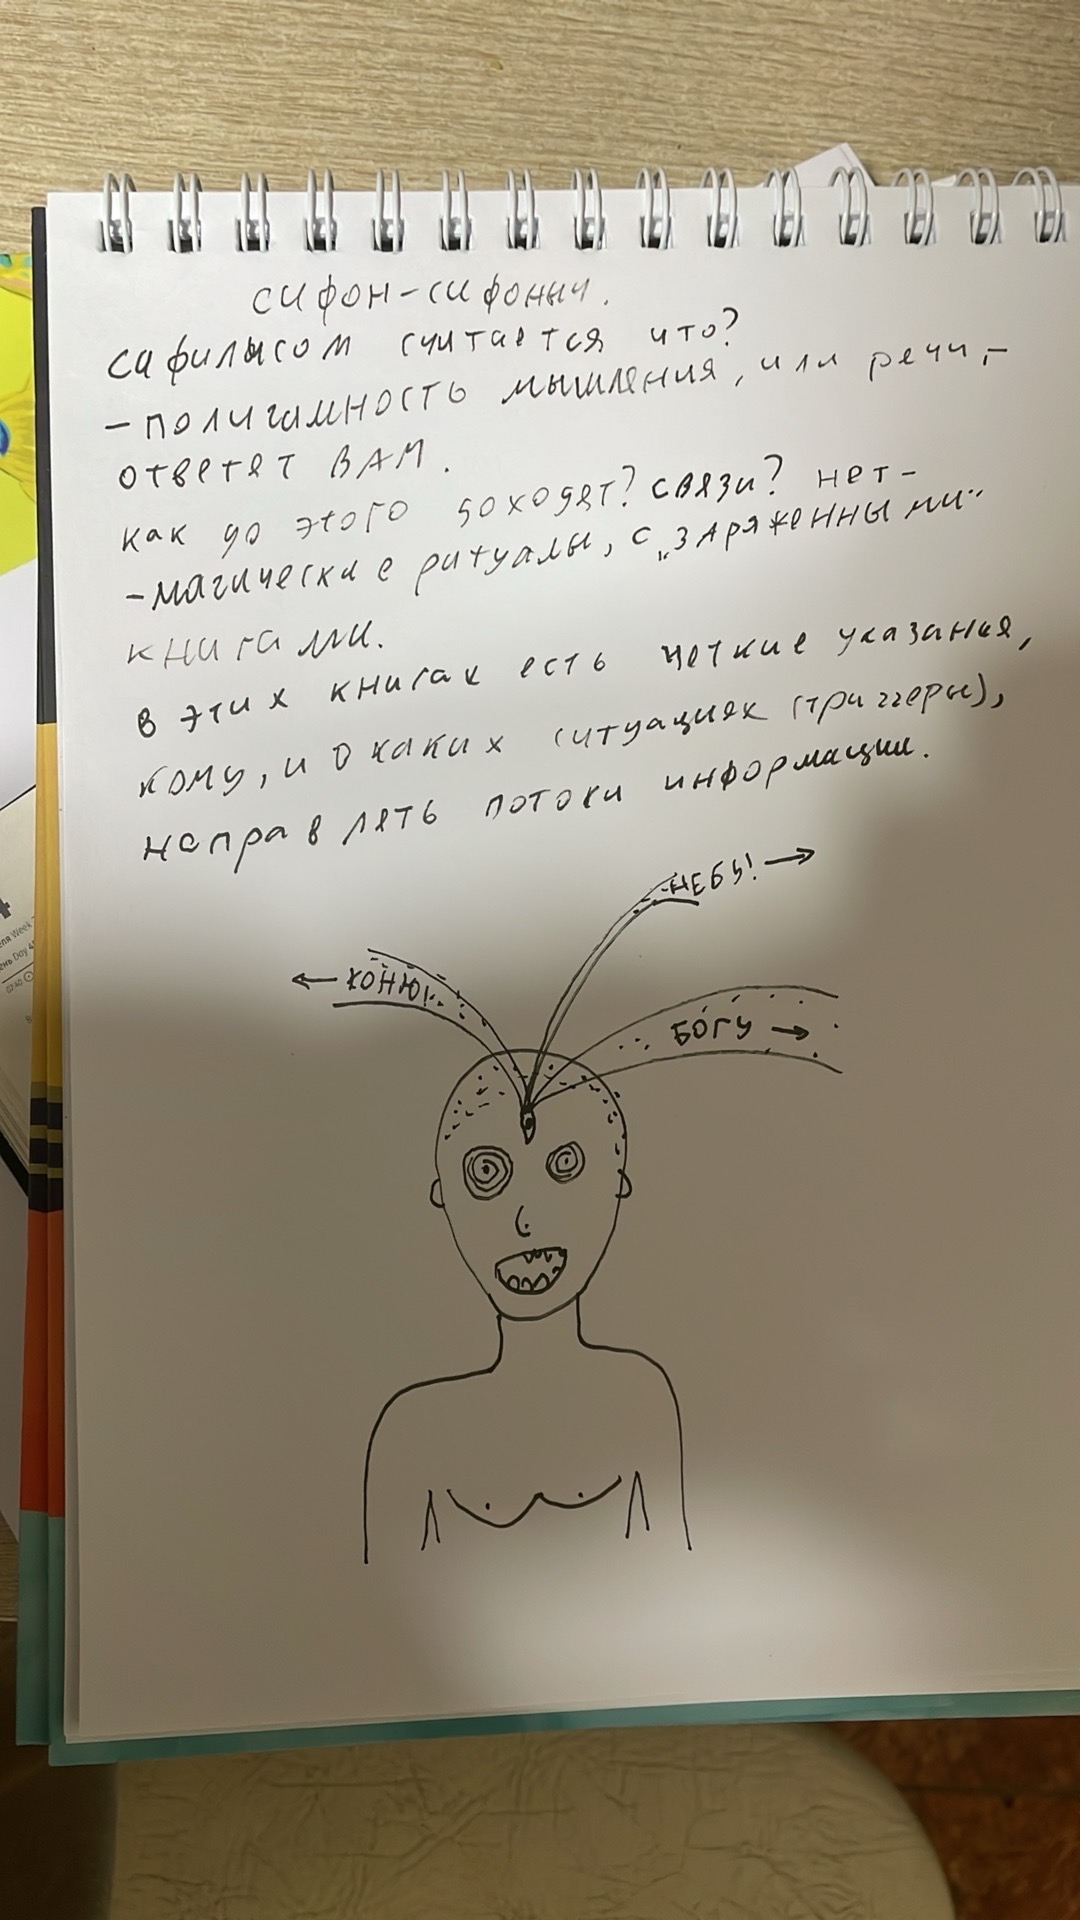 сифон-сифоныч.
сафилысом считается что?
- полигамность мышления, или речи, -
ответят ВАМ.
как до этого доходят? связи? нет -
- магические ритуалы, с „заряженными"
книгами.
в этих книгах есть четкие указания,
кому, и о каких ситуациях (триггеры),
направлять потоки информации.
НЕБУ! →
← КОНЮ!
БОГУ →